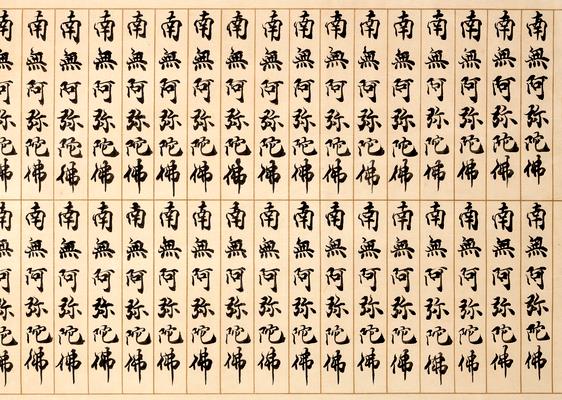 南無阿弥陀佛
南無阿弥陀佛
南無阿弥陀佛
南無阿弥陀佛
南無阿弥陀佛
南無阿弥陀佛
南無阿弥陀佛
南無阿弥陀佛
南無阿弥陀佛
南無阿弥陀佛
南無阿弥陀佛
南無阿弥陀佛
南無阿弥陀佛
南無阿弥陀佛
南無阿弥陀佛
南無阿弥陀佛
南無阿弥陀佛
南無阿弥陀佛
南無阿弥陀佛
南無阿弥陀佛
南無阿弥陀佛
南無阿弥陀佛
南無阿弥陀佛
南無阿弥陀佛
南無阿弥陀佛
南無阿弥陀佛
南無阿弥陀佛
南無阿弥陀佛
南無阿弥陀佛
南無阿弥陀佛
南無阿弥陀佛
南無阿弥陀佛
南無阿弥陀佛
南無阿弥陀佛